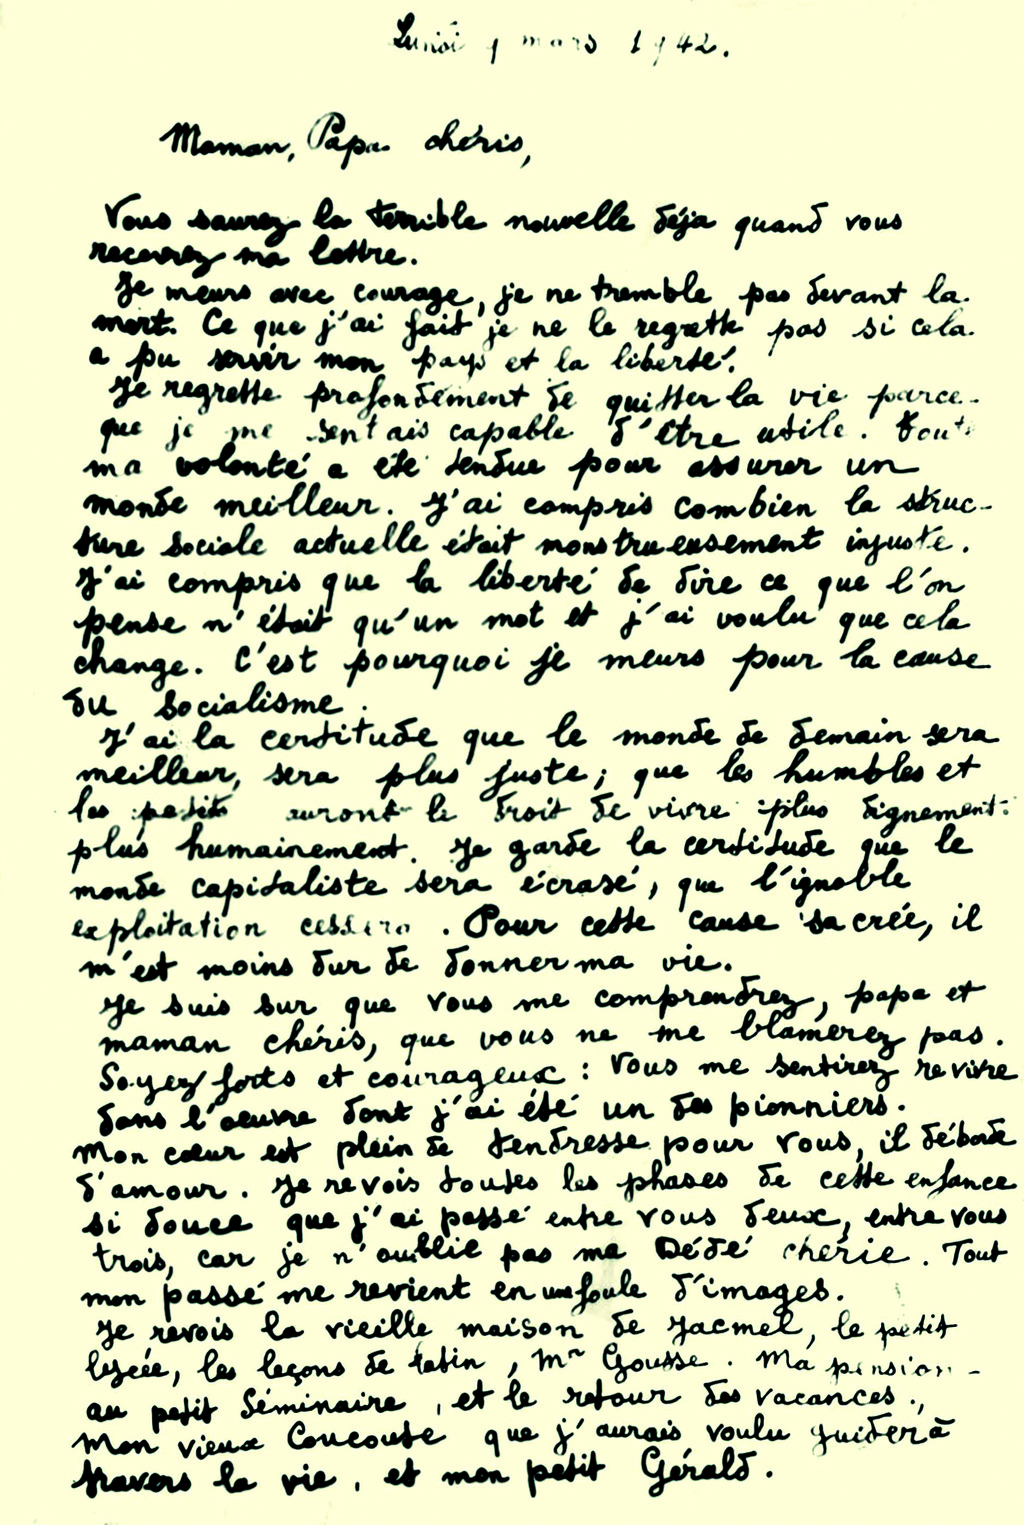 Lundi 9 mars 1942.
Maman, Papa chéris,
Vous saurez la terrible nouvelle déja quand vous
recevrez ma lettre.
Je meurs avec courage, je ne tremble pas devant la
mort. Ce que j'ai fait je ne le regrette pas si cela
a pu servir mon pays et la liberté.
Je regrette profondément de quitter la vie parce-
que je me sentais capable d'être utile. Toute
ma volonté a été tendue pour assurer un
monde meilleur. J'ai compris combien la struc-
ture sociale actuelle était monstrueusement injuste.
J'ai compris que la liberté de dire ce que l'on
pense n'était qu'un mot et j'ai voulu que cela
change. C'est pourquoi je meurs pour la cause
du socialisme.
J'ai la certitude que le monde de demain sera
meilleur, sera plus juste; que les humbles et
les petits auront le droit de vivre plus dignement.
plus humainement. Je garde la certitude que le
monde capitaliste sera écrasé, que l'ignoble
exploitation cessera. Pour cette cause sacrée, il
m'est moins dur de donner ma vie.
Je suis sur que vous me comprendrez, papa et
maman chéris, que vous ne me blamerez pas.
Soyez forts et courageux: Vous me sentirez revivre
dans l'oeuvre dont j'ai été un des pionniers.
Mon cœur est plein de tendresse pour vous, il déborde
d'amour. Je revois toutes les phases de cette enfance
si douce que j'ai passé entre vous deux, entre vous
trois, car je n'oublie pas ma Dédé chérie. Tout
mon passé me revient en une foule d'images.
Je revois la vieille maison de Jacmel, le petit
lycée, les leçons de latin, Mr Gousse. Ma pension-
au petit Séminaire, et le retour des vacances.,
Mon vieux Coucoute que j'aurais voulu guider à
travers la vie, et mon petit Gérald.